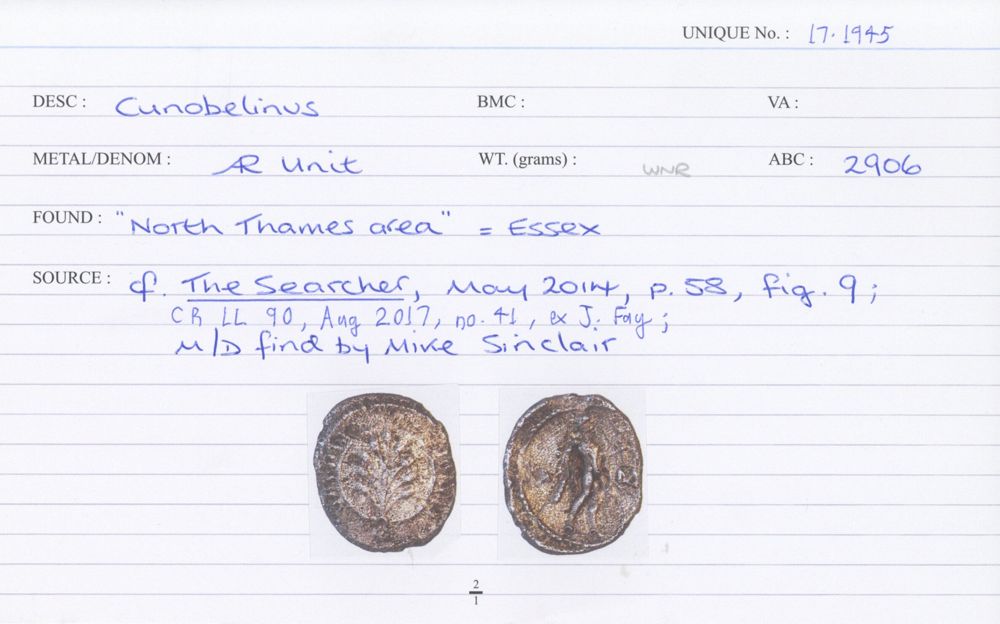 UNIQUE No. : 17.1945
DESC : Cunobelinus BMC : VA :
METAL/DENOM : AR Unit WT. (grams) : WNR ABC : 2906
FOUND : "North Thames area" = Essex
SOURCE : cf. The Searcher, May 2014, p. 58, fig. 9;
CR LL 90, Aug 2017, no. 41, ex J. Fay;
M/D find by Mike Sinclair
2
1